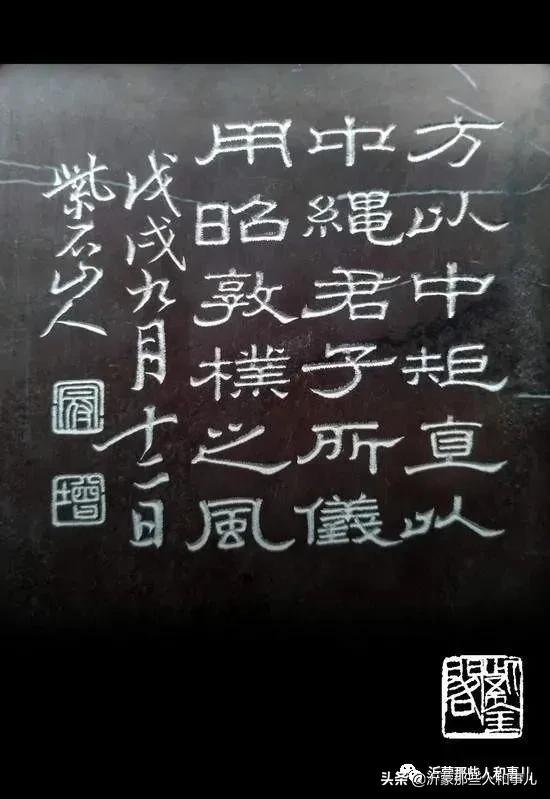 方以中矩直以
中繩君子所儀
用昭敦樸之風
戊戌九月十二日
紫石山人
沂蒙那些人和事儿
头条@沂蒙那些人和事儿